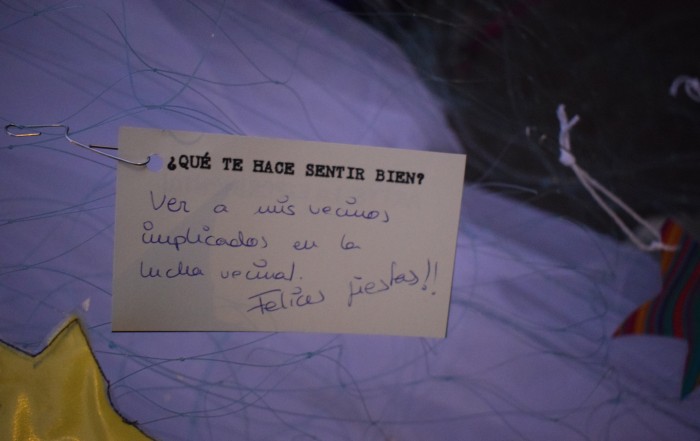 ¿QUÉ TE HACE SENTIR BIEN?
Ver a mis vecinos
implicados en la
lucha vecinal.
Felices fiestas!!